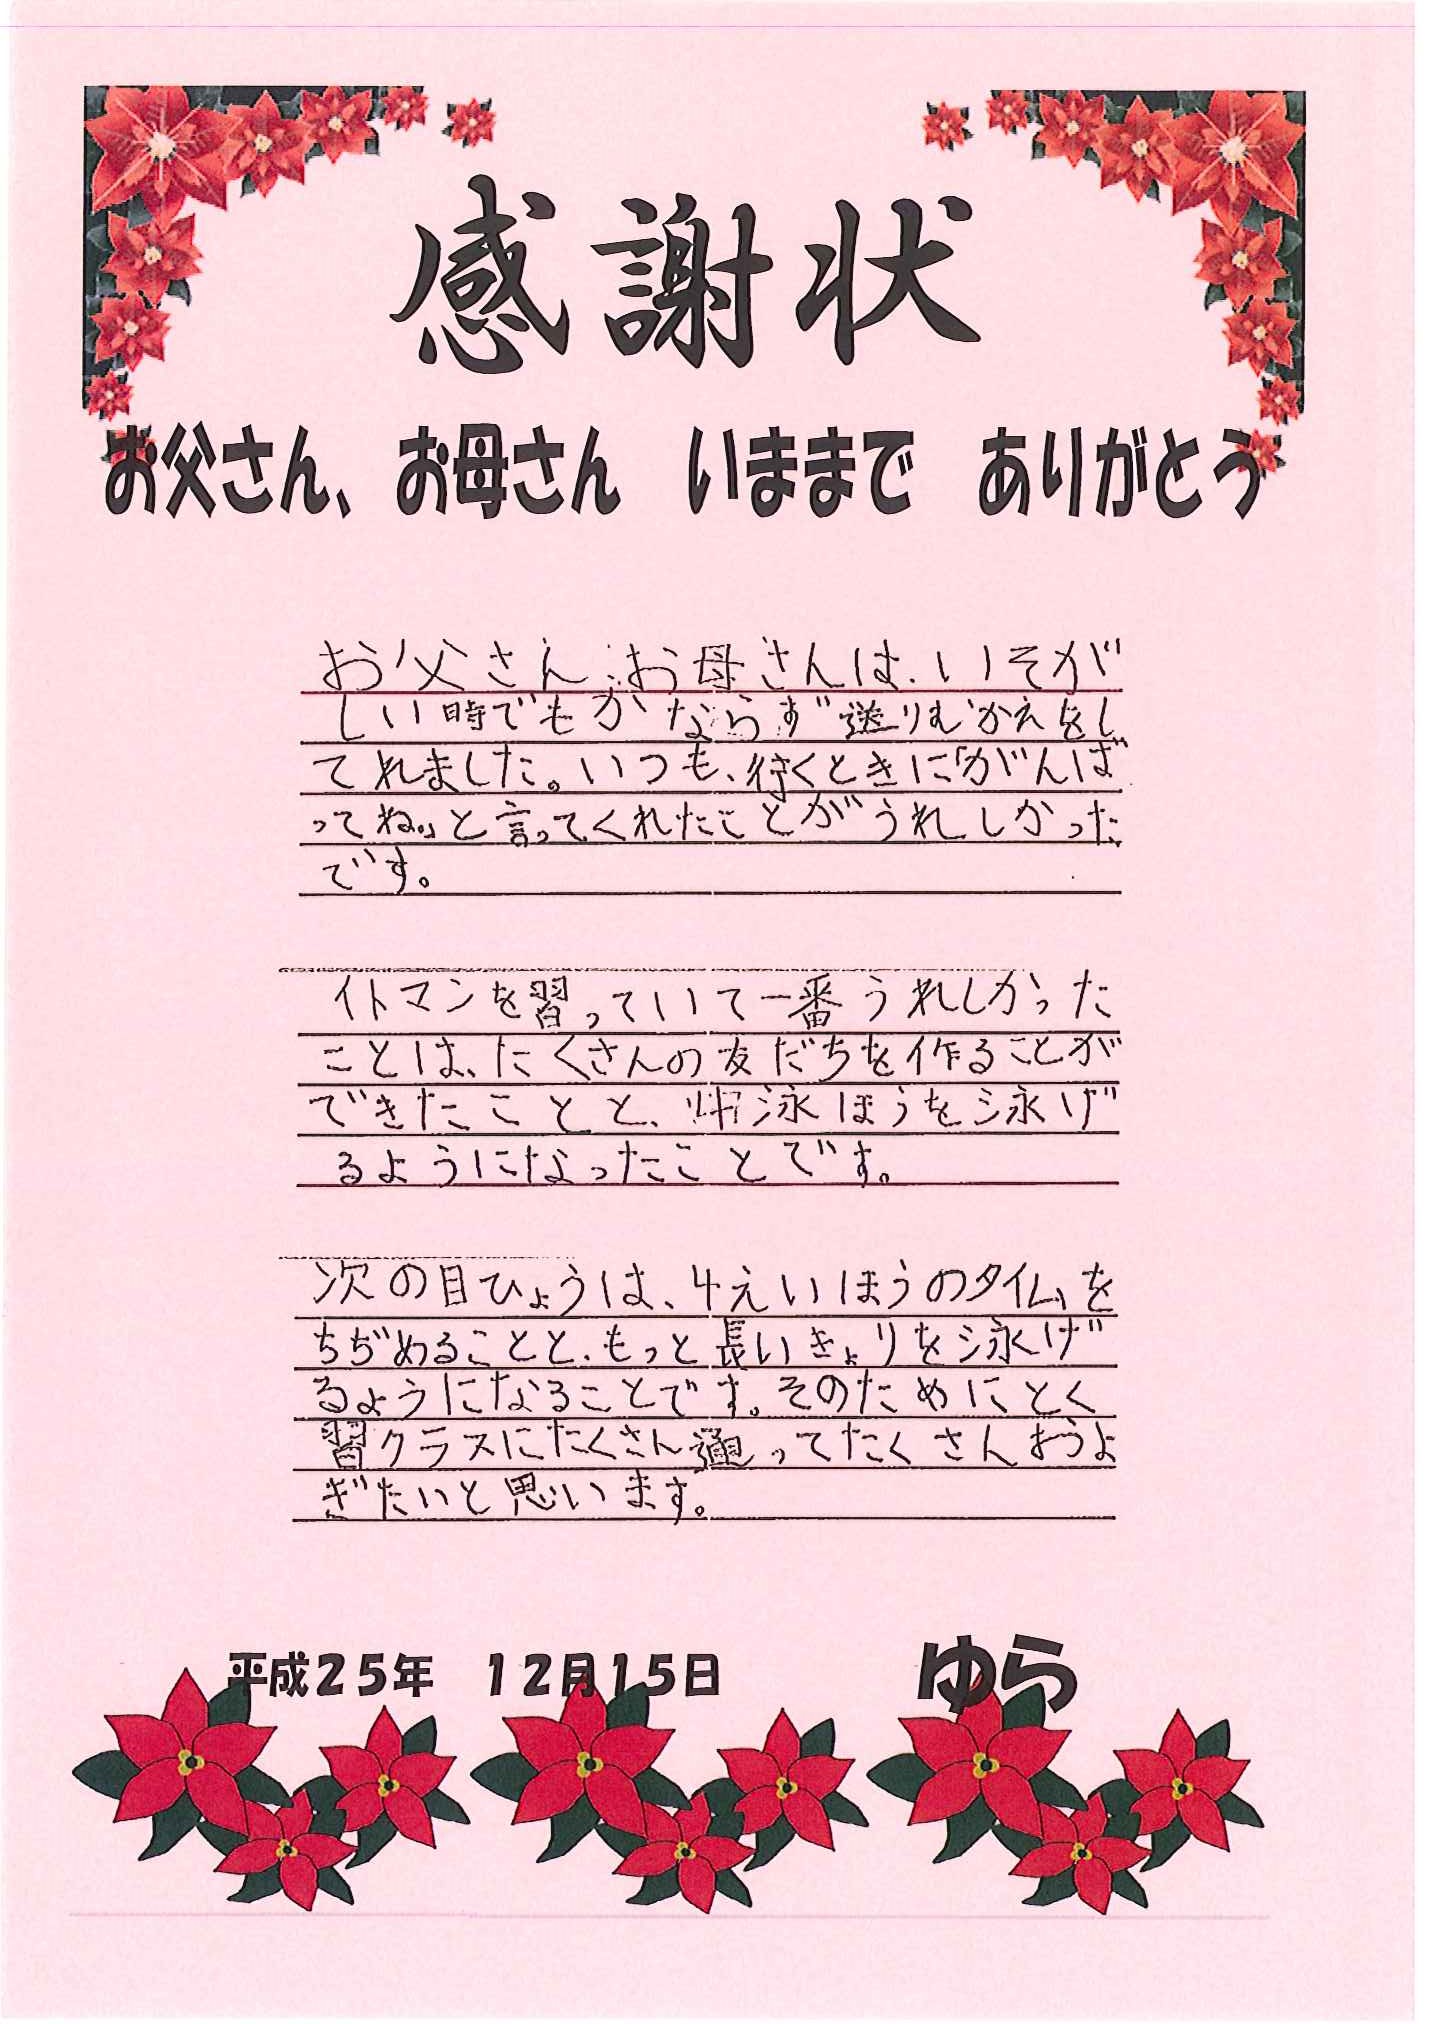 感謝状
お父さん、お母さん　いままで　ありがとう
お父さん、お母さんは、いそが
しい時でもかならず送りむかえをし
てれました。いつも、行くときに「がんば
ってね。」と言ってくれたことがうれしかった
です。
イトマンを習っていて一番うれしかった
ことは、たくさんの友だちを作ることが
できたことと、泳ほうを泳げ
るようになったことです。
次の目ひょうは、4えいほうのタイムを
ちぢめることと、もっと長いきょりを泳げ
るようになることです。そのためにとく
習クラスにたくさん通ってたくさんおうよ
ぎたいと思います。
平成25年　12月15日
ゆら